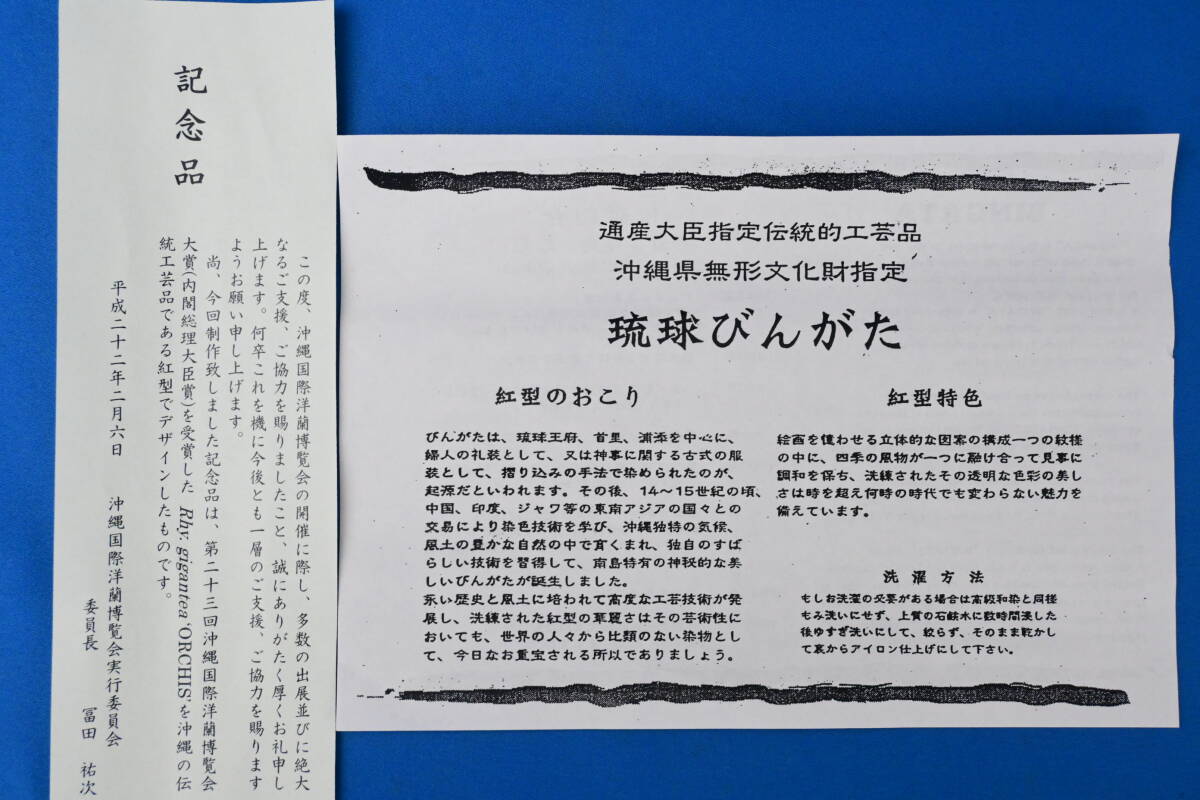 記念品
この度、沖縄国際洋蘭博覧会の開催に際し、多数の出展並びに絶大
なるご支援、ご協力を賜りましたこと、誠にありがたく厚くお礼申し
上げます。何卒これを機に今後とも一層のご支援、ご協力を賜ります
ようお願い申し上げます。
尚、今回制作致しました記念品は、第二十三回沖縄国際洋蘭博覧会
大賞(内閣総理大臣賞)を受賞した Rhy. gigantea 'ORCHIS'を沖縄の伝
統工芸品である紅型でデザインしたものです。
平成二十二年二月六日
沖縄国際洋蘭博覧会実行委員会
委員長 冨田 祐次
通産大臣指定伝統的工芸品
沖縄県無形文化財指定
琉球びんがた
紅型のおこり
びんがたは、琉球王府、首里、浦添を中心に、
婦人の礼装として、又は神事に関する古式の服
装として、摺り込みの手法で染められたのが、
起源だといわれます。その後、14〜15世紀の頃、
中国、印度、ジャワ等の東南アジアの国々との
交易により染色技術を学び、沖縄独特の気候、
風土の豊かな自然の中で育くまれ、独自のすば
らしい技術を習得して、南島特有の神秘的な美
しいびんがたが誕生しました。
永い歴史と風土に培われて高度な工芸技術が発
展し、洗練された紅型の華麗さはその芸術性に
おいても、世界の人々から比類のない染物とし
て、今日なお重宝される所以でありましょう。
紅型特色
絵画を憶わせる立体的な図案の構成一つの紋様
の中に、四季の風物が一つに融け合って見事に
調和を保ち、洗練されたその透明な色彩の美し
さは時を超え何時の時代でも変わらない魅力を
備えています。
洗濯方法
もしお洗濯の必要がある場合は高級和染と同様
もみ洗いにせず、上質の石鹸水に数時間浸した
後ゆすぎ洗いにして、絞らず、そのまま乾かし
て裏からアイロン仕上げにして下さい。